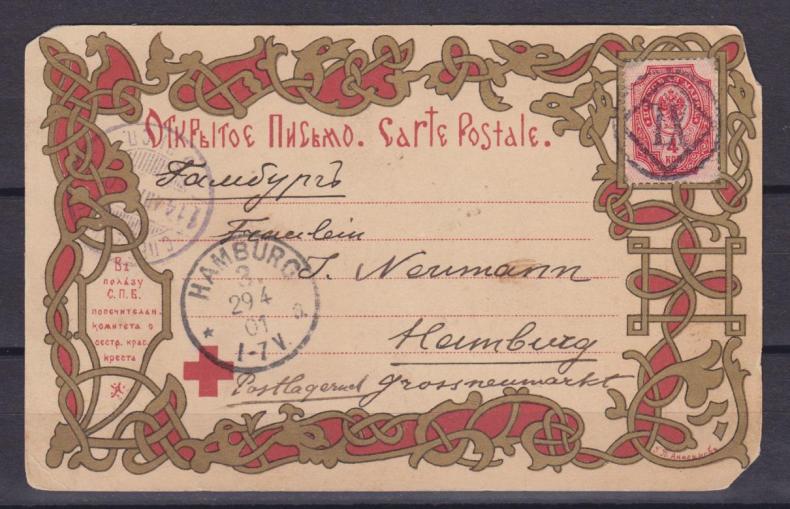 Открытое Письмо. Carte Postale.
4
КОП
Гамбургъ
Fraulein
J. Neumann
Hamburg
Postlagernd Grossneumarkt
HAMBURG
3
29 4
01
1-7 V.
* a.
Въ
пользу
С.П.Б.
попечителн.
комитета о
сестр. крас.
креста